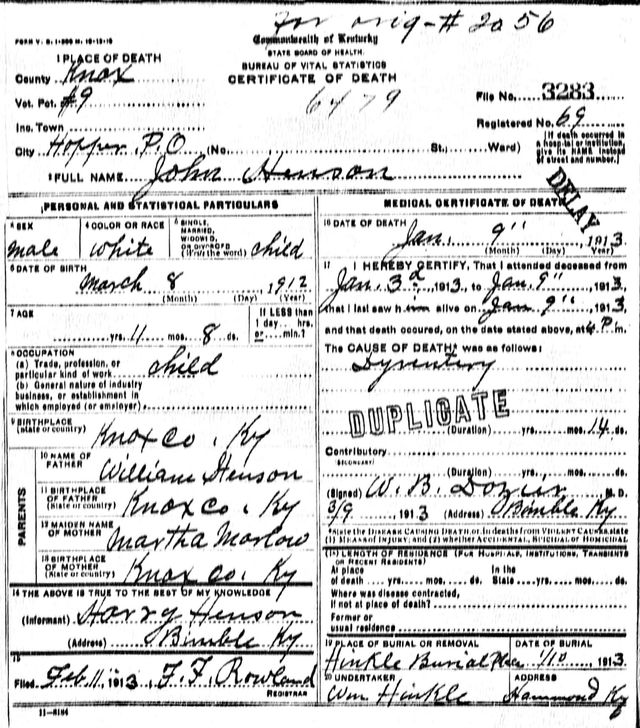 for orig - # 2056
FORM V. S. 1-300 M. 10-13-10
Commonwealth of Kentucky
STATE BOARD OF HEALTH.
BUREAU OF VITAL STATISTICS
CERTIFICATE OF DEATH
1 PLACE OF DEATH
County Knox
Vot. Pct. #9
6479
File No. 3283
Inc. Town
Registered No. 69
City Hopper P.O (No. St., Ward)
[If death occurred in a hospital or institution, give its NAME instead of street and number.]
2 FULL NAME John Henson
DELAY
PERSONAL AND STATISTICAL PARTICULARS
3 SEX male
4 COLOR OR RACE white
5 SINGLE, MARRIED, WIDOWED, OR DIVORCED (Write the word) child
6 DATE OF BIRTH
March 8, 1912
(Month) (Day) (Year)
7 AGE
yrs. 11 mos. 8 ds.
If LESS than 1 day, hrs. or min.?
8 OCCUPATION
(a) Trade, profession, or particular kind of work child
(b) General nature of industry business, or establishment in which employed (or employer)
9 BIRTHPLACE (State or country) Knox Co. Ky
PARENTS
10 NAME OF FATHER William Henson
11 BIRTHPLACE OF FATHER (State or country) Knox Co. Ky
12 MAIDEN NAME OF MOTHER Martha Marlow
13 BIRTHPLACE OF MOTHER (State or country) Knox Co. Ky
14 THE ABOVE IS TRUE TO THE BEST OF MY KNOWLEDGE
(Informant) Harry Henson
(Address) Bimble Ky
15
Filed Feb 11, 1913 F. F. Rowland
REGISTRAR
11-6184
MEDICAL CERTIFICATE OF DEATH
16 DATE OF DEATH
Jan. 9", 1913
(Month) (Day) (Year)
17 I HEREBY CERTIFY, That I attended deceased from
Jan. 3d 1913, to Jan. 9", 1913,
that I last saw him alive on Jan. 9", 1913,
and that death occured, on the date stated above, at 4 P. m.
The CAUSE OF DEATH* was as follows:
Dysentery
DUPLICATE
(Duration) yrs. mos. 14 ds.
Contributory
(SECONDARY)
(Duration) yrs. mos. ds.
(Signed) W. B. Dozier M. D.
3/9, 1913 (Address) Bimble Ky
*State the DISEASE CAUSING DEATH, or, in deaths from VIOLENT CAUSES, state
(1) MEANS OF INJURY, and (2) whether ACCIDENTAL, SUICIDAL or HOMICIDAL
18 LENGTH OF RESIDENCE (FOR HOSPITALS, INSTITUTIONS, TRANSIENTS OR RECENT RESIDENTS)
At place of death yrs. mos. ds. In the State yrs. mos. ds.
Where was disease contracted, if not at place of death?
Former or usual residence
19 PLACE OF BURIAL OR REMOVAL Hinkle Burial Place
DATE OF BURIAL 1913
20 UNDERTAKER Wm Hinkle
ADDRESS Hammond Ky